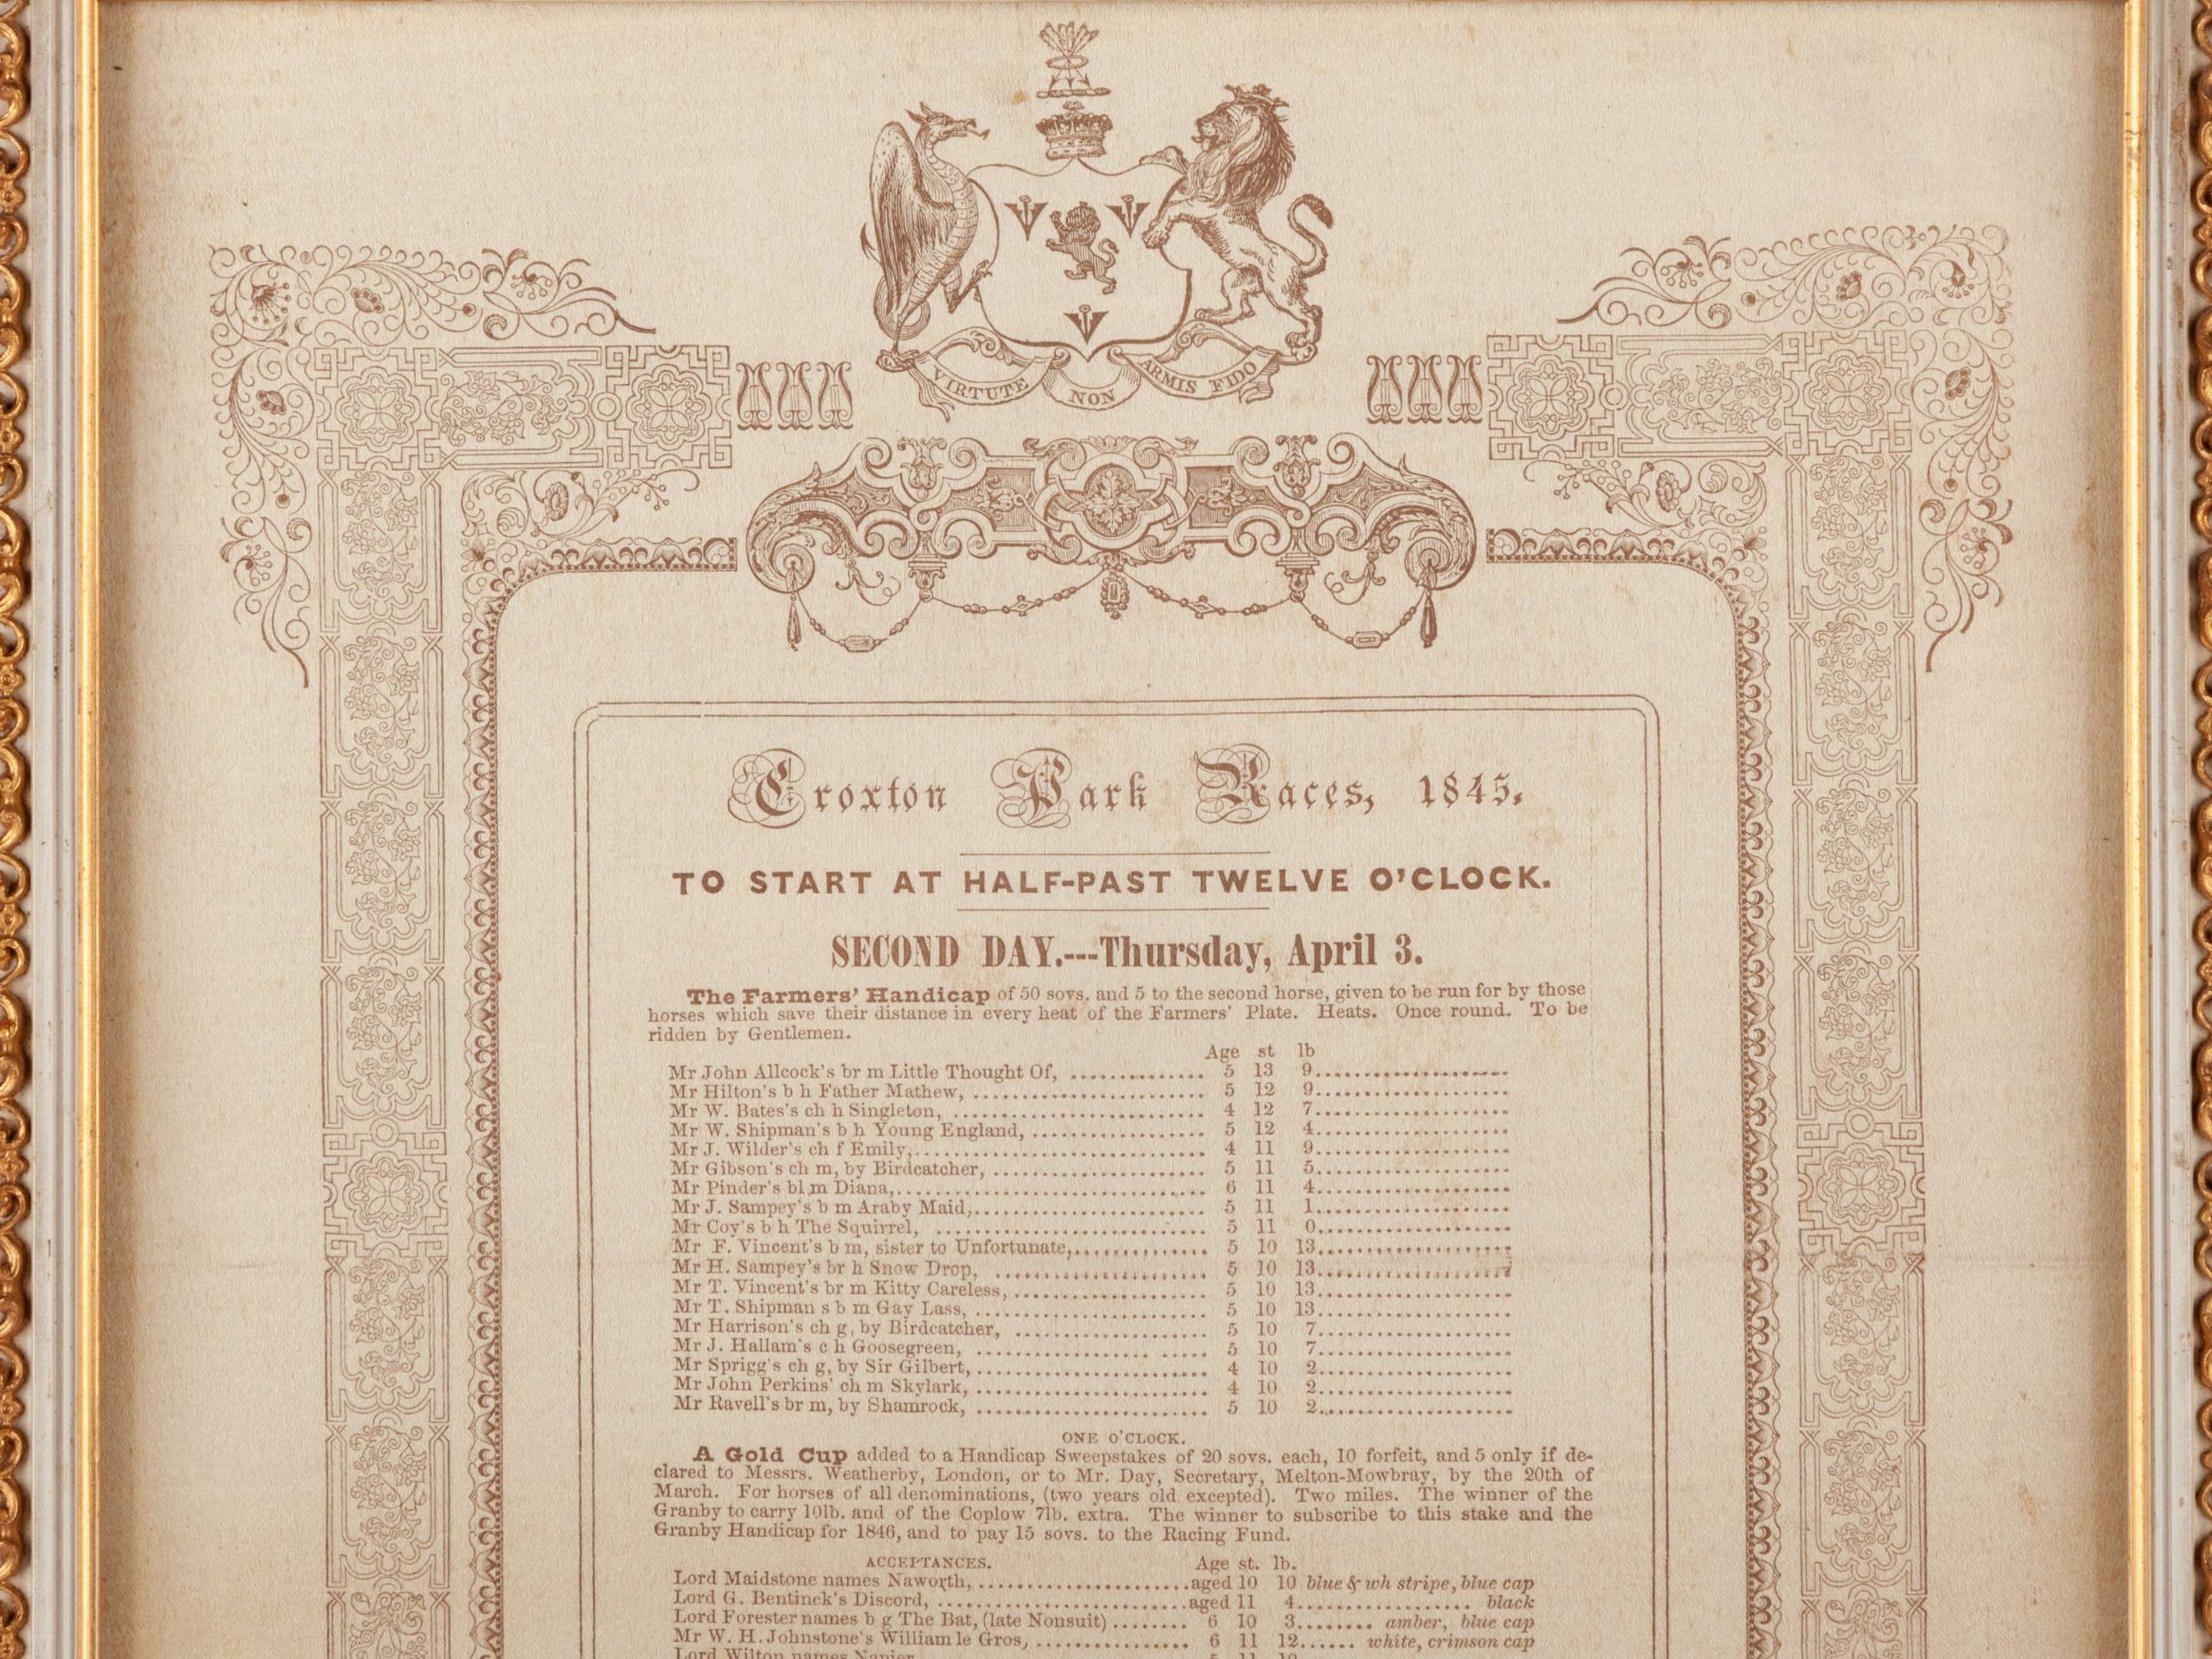 VIRTUTE NON ARMIS FIDO
Croxton Park Races, 1845.
TO START AT HALF-PAST TWELVE O'CLOCK.
SECOND DAY.---Thursday, April 3.
The Farmers' Handicap of 50 sovs. and 5 to the second horse, given to be run for by those
horses which save their distance in every heat of the Farmers' Plate. Heats. Once round. To be
ridden by Gentlemen.
Age st lb
Mr John Allcock's br m Little Thought Of, .............. 5 13 9....................
Mr Hilton's b h Father Mathew, ........................ 5 12 9....................
Mr W. Bates's ch h Singleton, .......................... 4 12 7....................
Mr W. Shipman's b h Young England, .................. 5 12 4....................
Mr J. Wilder's ch f Emily,.............................. 4 11 9....................
Mr Gibson's ch m, by Birdcatcher, ...................... 5 11 5....................
Mr Pinder's bl m Diana,................................ 6 11 4....................
Mr J. Sampey's b m Araby Maid,........................ 5 11 1....................
Mr Coy's b h The Squirrel, ............................ 5 11 0....................
Mr F. Vincent's b m, sister to Unfortunate,.............. 5 10 13....................
Mr H. Sampey's br h Snow Drop, ...................... 5 10 13....................
Mr T. Vincent's br m Kitty Careless, .................... 5 10 13....................
Mr T. Shipman s b m Gay Lass, ........................ 5 10 13....................
Mr Harrison's ch g, by Birdcatcher, .................... 5 10 7....................
Mr J. Hallam's c h Goosegreen, ........................ 5 10 7....................
Mr Sprigg's ch g, by Sir Gilbert, ........................ 4 10 2....................
Mr John Perkins' ch m Skylark, ........................ 4 10 2....................
Mr Ravell's br m, by Shamrock, ........................ 5 10 2....................
ONE O'CLOCK.
A Gold Cup added to a Handicap Sweepstakes of 20 sovs. each, 10 forfeit, and 5 only if de-
clared to Messrs. Weatherby, London, or to Mr. Day, Secretary, Melton-Mowbray, by the 20th of
March. For horses of all denominations, (two years old excepted). Two miles. The winner of the
Granby to carry 10lb. and of the Coplow 7lb. extra. The winner to subscribe to this stake and the
Granby Handicap for 1846, and to pay 15 sovs. to the Racing Fund.
ACCEPTANCES. Age st. lb.
Lord Maidstone names Naworth, ......................aged 10 10 blue & wh stripe, blue cap
Lord G. Bentinck's Discord, ..........................aged 11 4.................. black
Lord Forester names b g The Bat, (late Nonsuit) ........ 6 10 3........ amber, blue cap
Mr W. H. Johnstone's William le Gros, ................ 6 11 12...... white, crimson cap
Lord Wilton names Napier